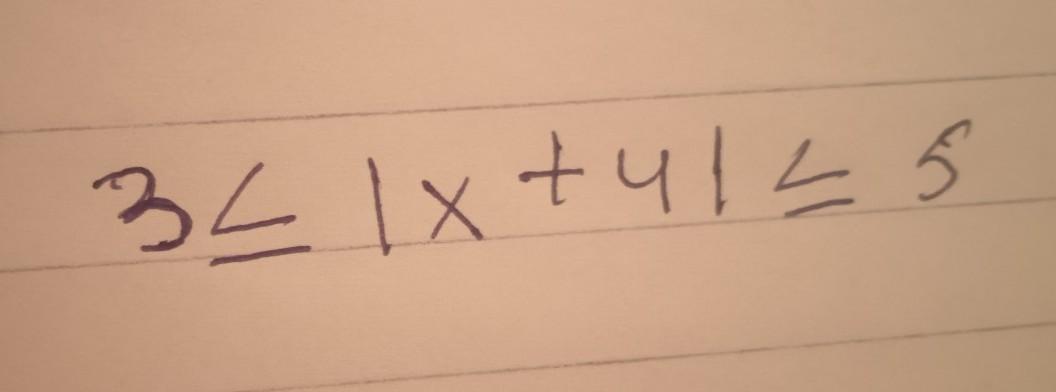 3 ≤ |x + 4| ≤ 5